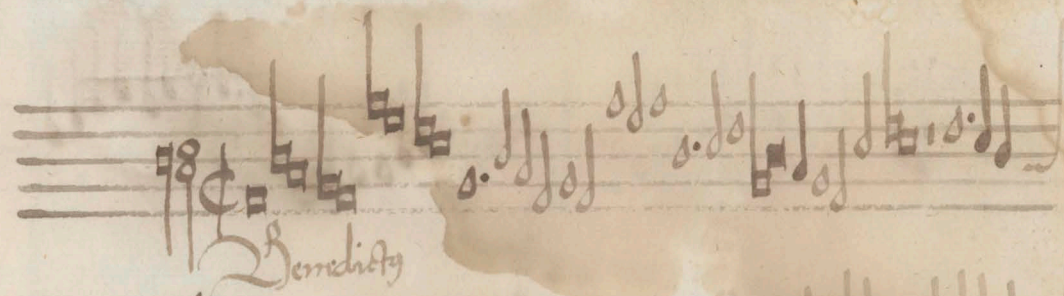 Benedictꝰ